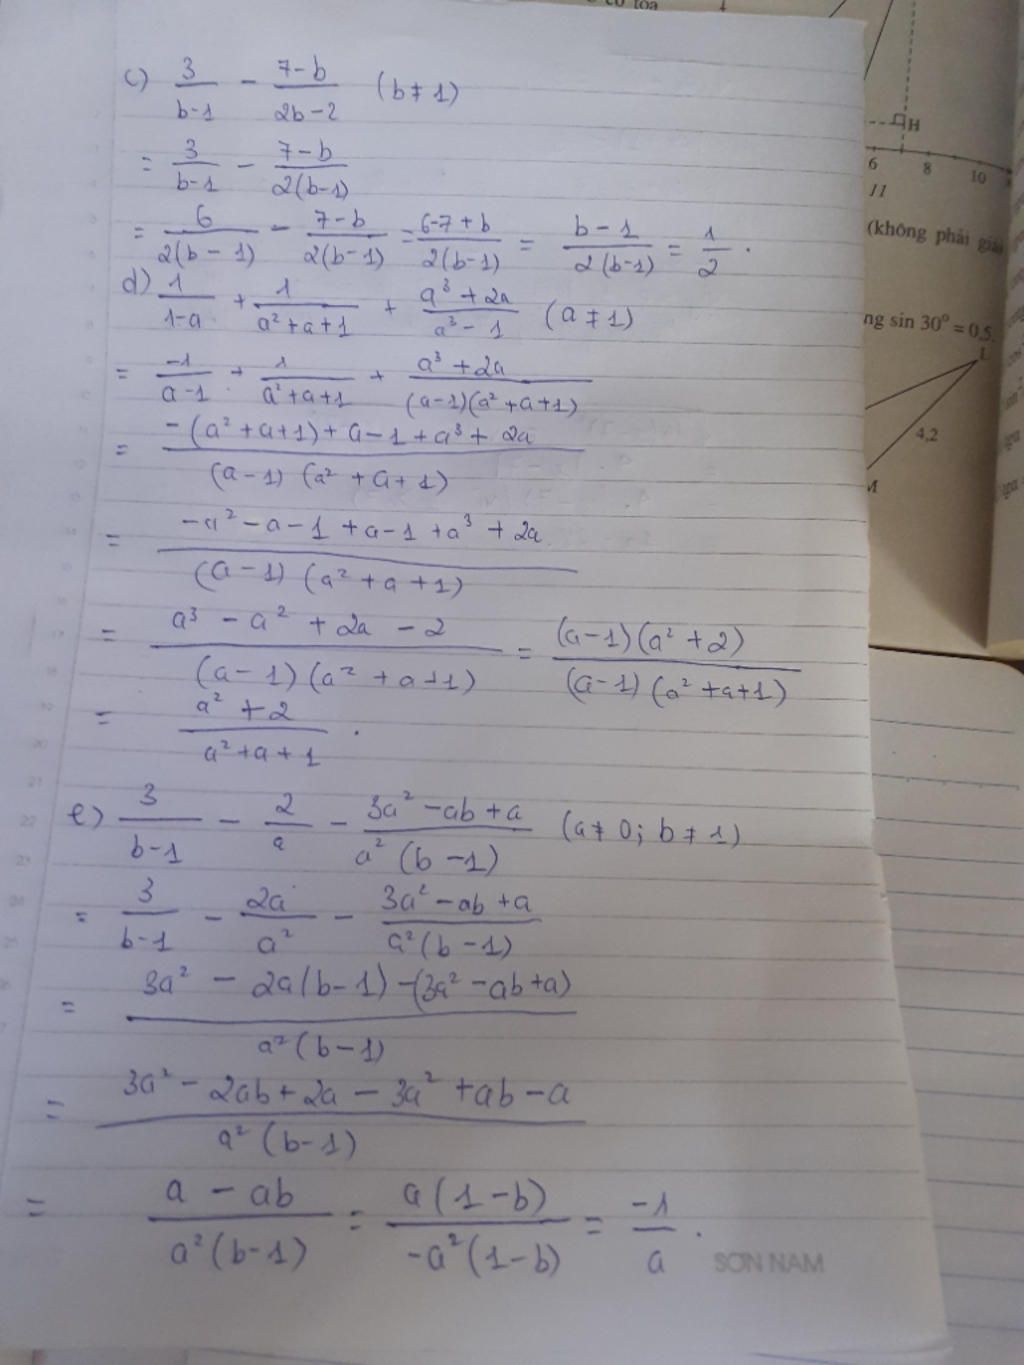 có tọa
c) 3/(b-1) - (7-b)/(2b-2) (b≠1)
= 3/(b-1) - (7-b)/(2(b-1))
= 6/(2(b-1)) - (7-b)/(2(b-1)) = (6-7+b)/(2(b-1)) = (b-1)/(2(b-1)) = 1/2.
d) 1/(1-a) + 1/(a²+a+1) + (a³+2a)/(a³-1) (a≠1)
= -1/(a-1) + 1/(a²+a+1) + (a³+2a)/((a-1)(a²+a+1))
= (-(a²+a+1)+a-1+a³+2a)/((a-1)(a²+a+1))
= (-a²-a-1+a-1+a³+2a)/((a-1)(a²+a+1))
= (a³-a²+2a-2)/((a-1)(a²+a+1)) = ((a-1)(a²+2))/((a-1)(a²+a+1))
= (a²+2)/(a²+a+1).
e) 3/(b-1) - 2/a - (3a²-ab+a)/(a²(b-1)) (a≠0; b≠1)
= 3/(b-1) - 2a/a² - (3a²-ab+a)/(a²(b-1))
= (3a²-2a(b-1)-(3a²-ab+a))/(a²(b-1))
= (3a²-2ab+2a-3a²+ab-a)/(a²(b-1))
= (a-ab)/(a²(b-1)) = (a(1-b))/(-a²(1-b)) = -1/a.
SƠN NAM
H
6 8 10
11
(không phải giải
ng sin 30° = 0,5.
L
4,2
M